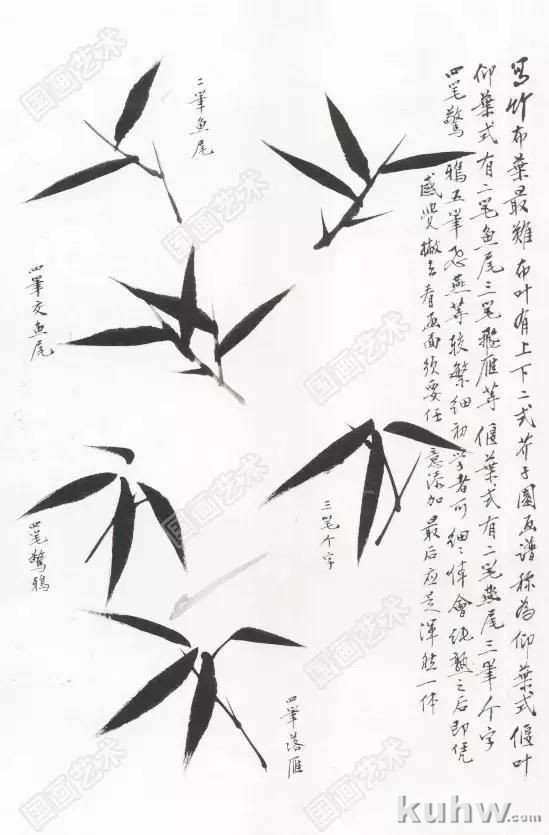 写竹布葉最难布叶有上下二式芥子園画譜称為仰葉式偃叶
仰葉式有二笔鱼尾三笔飛雁等偃葉式有二笔燕尾三筆个字
四笔驚鴉五筆飞燕等较繁细初学者可细々体會纯熟之后即凭
感觉撇去看画面须要任意添加最后应是渾然一体
二筆鱼尾
四筆交鱼尾
三笔个字
四笔驚鴉
四筆落雁
国画艺术
国画艺术
国画艺术
国画艺术
国画艺术
国画艺术
国画艺术
国画艺术
kuhw.com